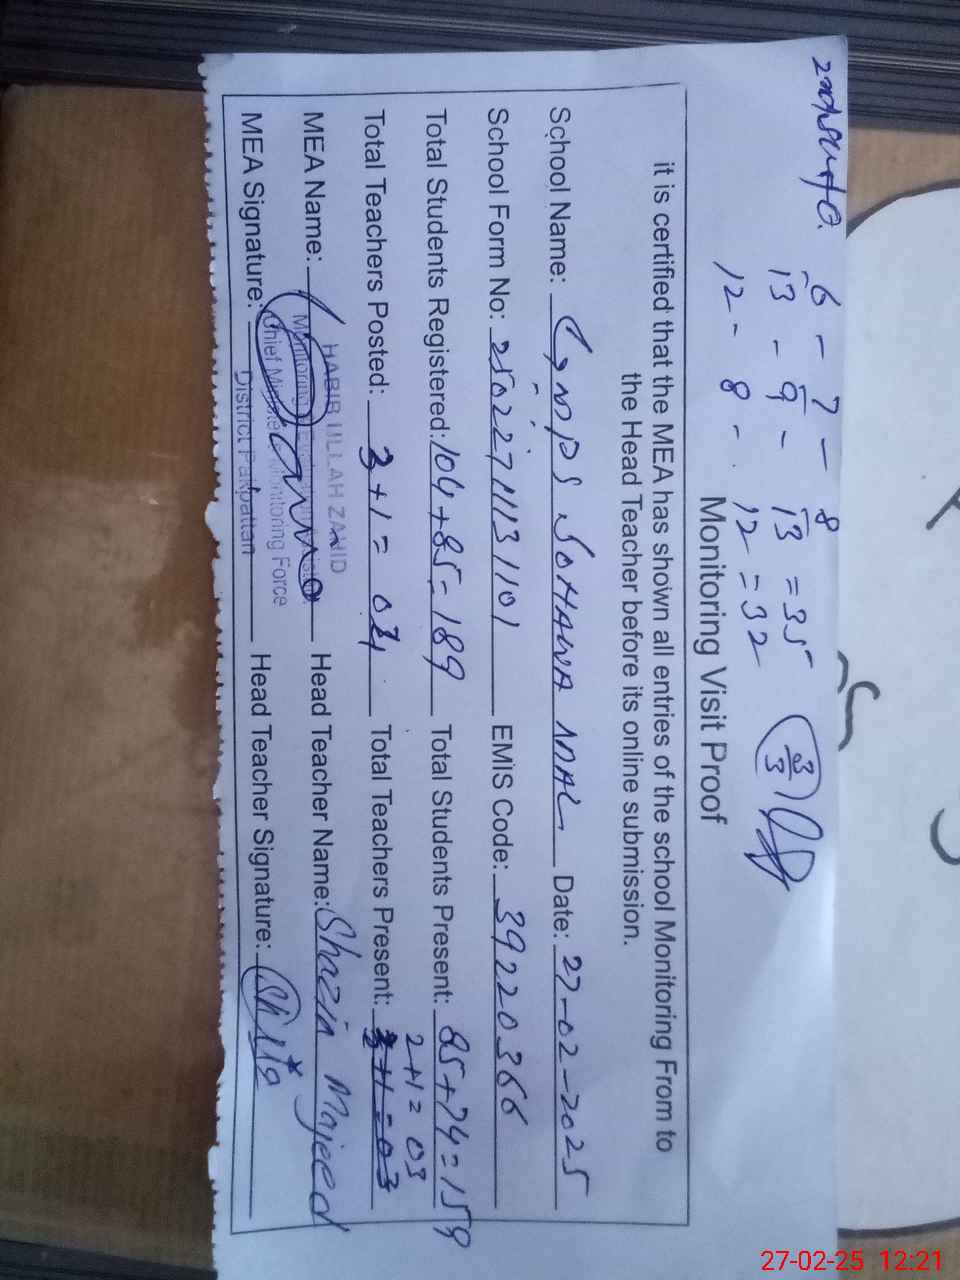 6 - 7 - 8
13 - 9 - 13 = 35
12 - 8 - 12 = 32
3/3
Monitoring Visit Proof
it is certified that the MEA has shown all entries of the school Monitoring From to
the Head Teacher before its online submission.
School Name: GMPS SOHAWA MAL Date: 27-02-2025
School Form No: EMIS Code: 39220366
Total Students Registered: 104+85=189 Total Students Present: 85+74=159
2+1=03
Total Teachers Posted: 3+1=04 Total Teachers Present: 3+1=03
HABIB ULLAH ZAHID
MEA Name: Head Teacher Name: Shazia Majeed
Monitoring
Chief Minister's Monitoring Force
MEA Signature: Head Teacher Signature:
District Pakpattan
27-02-25 12:21